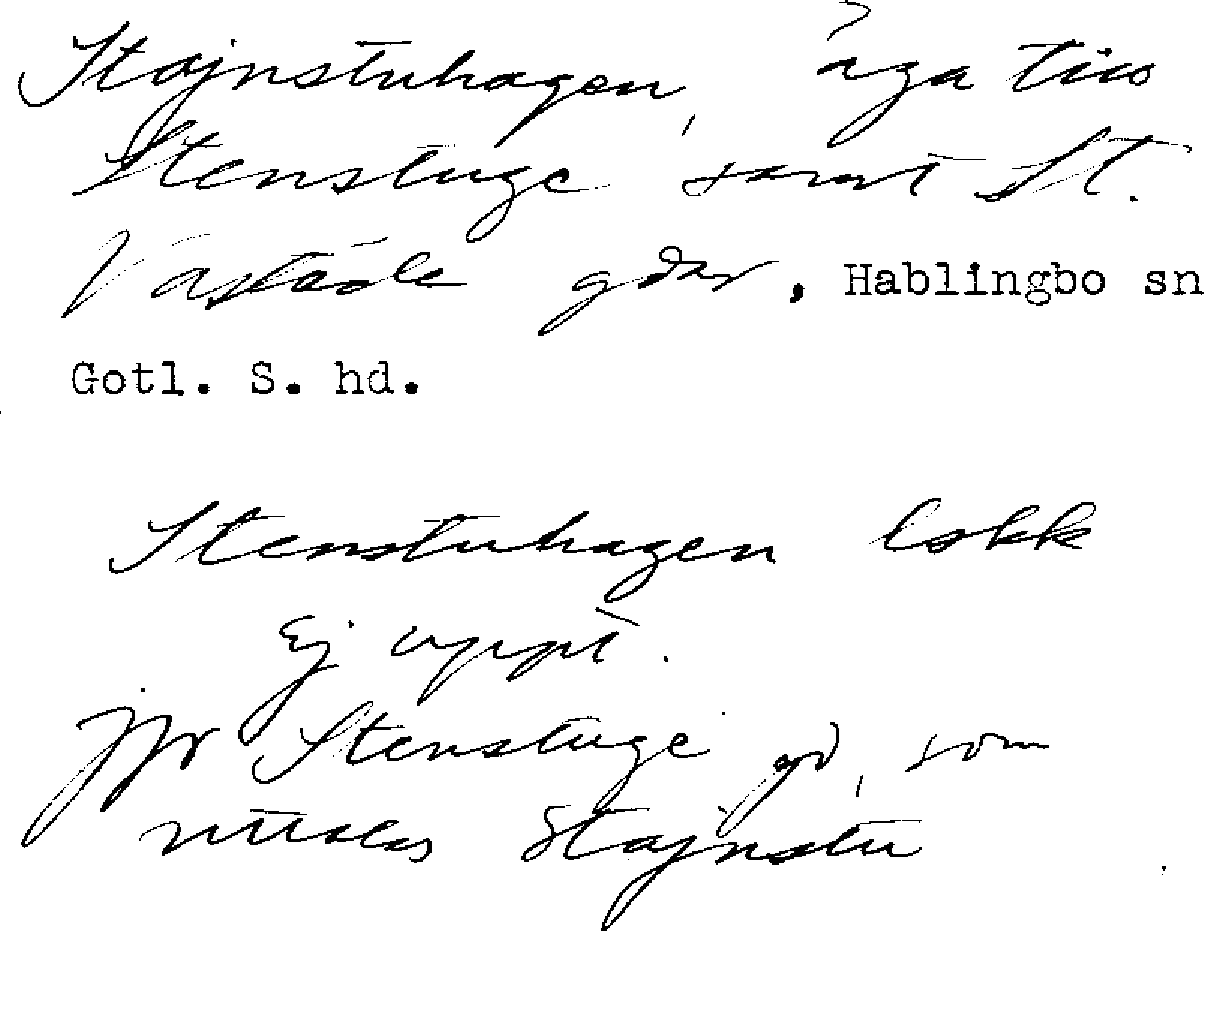 Stajnstuhagen, äga till
Stenstuge samt St.
Västäde gdar, Hablingbo sn
Gotl. S. hd.
Stenstuhagen Eskk
Ej uppt.
jfr Stenstuge gd, som
uttalas Stajnstu